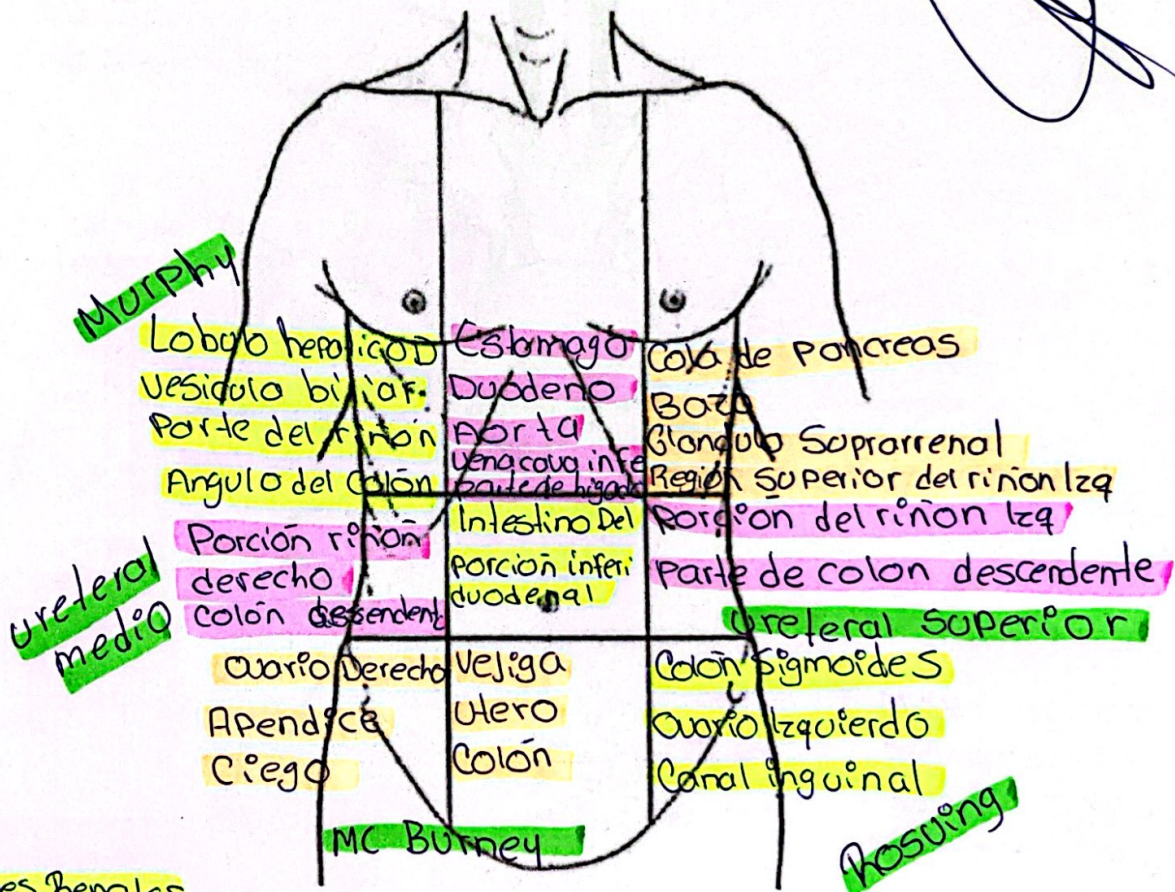 Murphy
Lobulo hepaticoD
Vesicula biliar.
Parte del riñon
Angulo del Colón
Estomago
Duodeno
Aorta
Vena cava infe
parte de higado
Cola de pancreas
Bazo
Glandula Suprarrenal
Región Superior del riñon Izq
ureteral
medio
Porción riñon
derecho
Colón dessendent
Intestino Del
porcion inferi
duodenal
Porcion del riñon Izq
Parte de colon descendente
Ureteral Superior
Ovario Derecho
Apendice
Ciego
Vejiga
Utero
Colón
Colón Sigmoides
Ovario Izquierdo
Canal inguinal
MC Burney
Rosving
es Renales